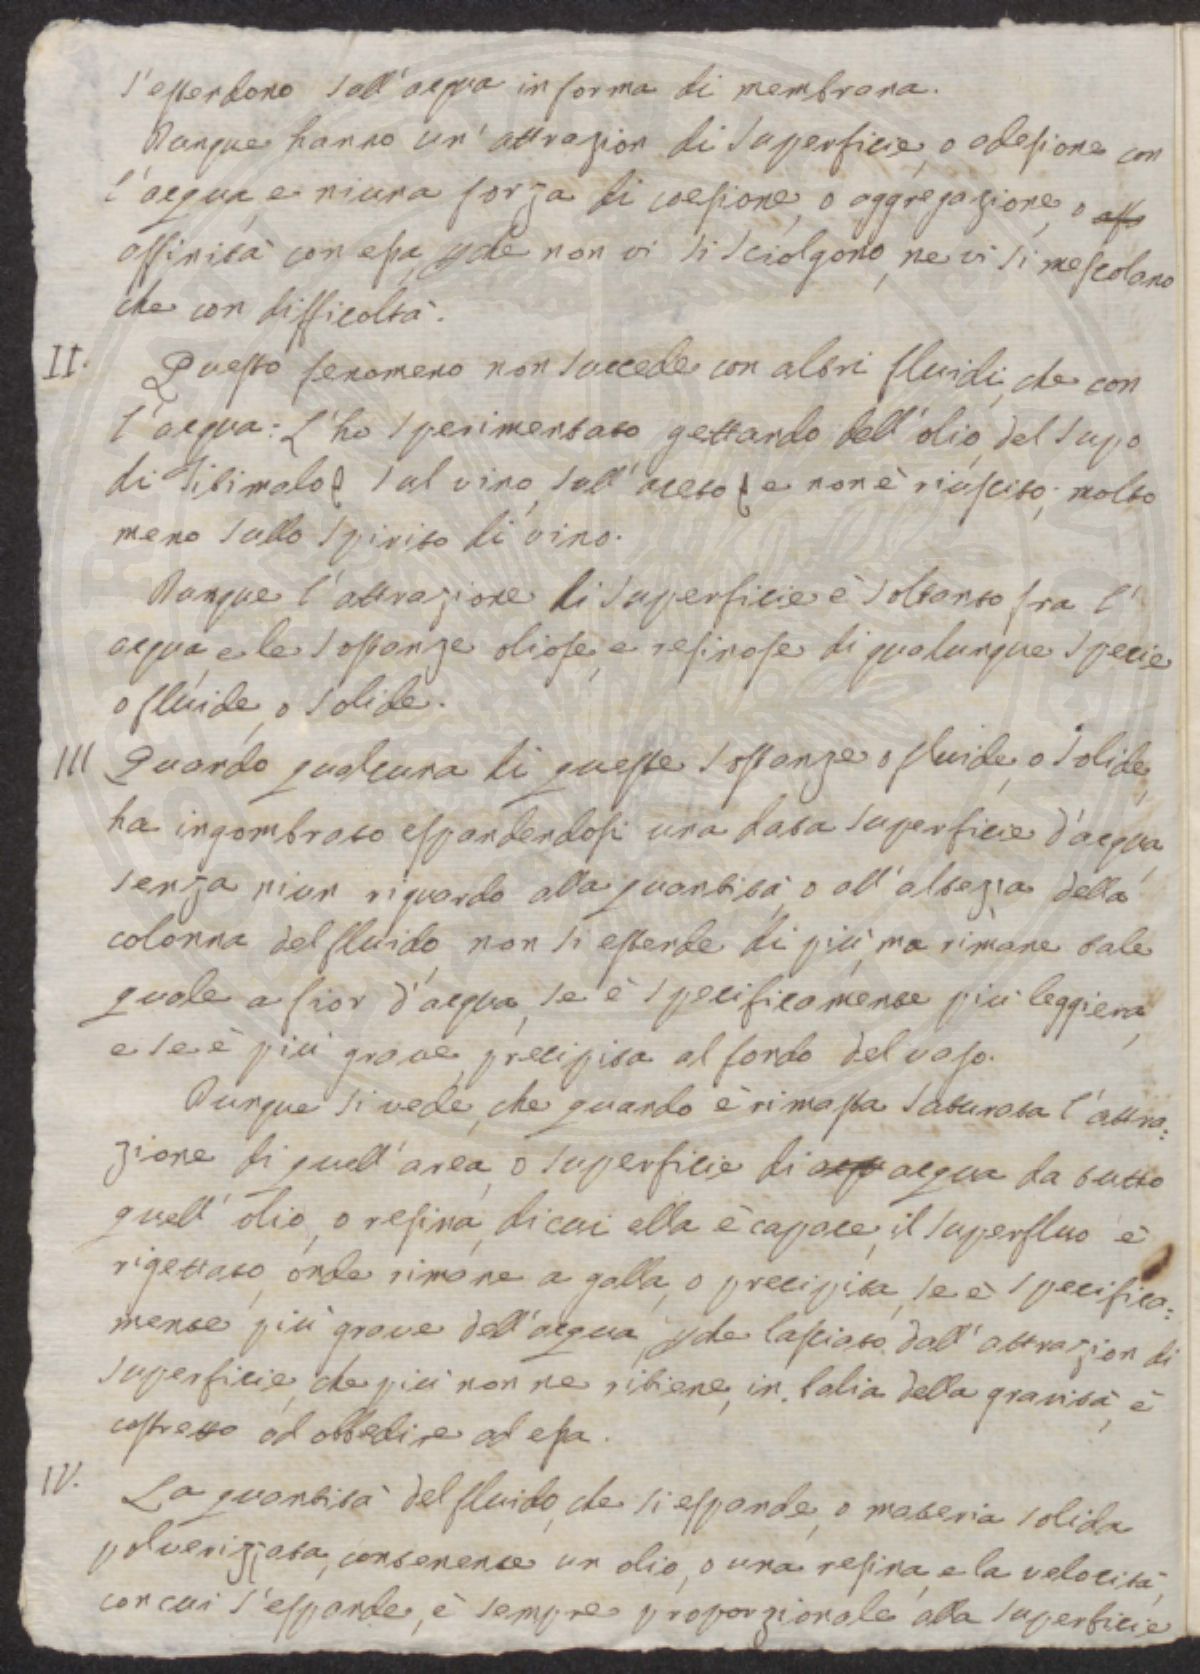 s'estendono sull'acqua in forma di membrana.
Dunque hanno un'attrazion di superficie, o adesione con
l'acqua, e niuna forza di coesione, o aggregazione, o
affinità con essa, giachè non vi si sciolgono, ne vi si mescolano
che con difficoltà.
II. Questo fenomeno non succede con altri fluidi, che con
l'acqua: L'ho sperimentato gettando dell'olio, del supo
di Titimalo sul vino, sull'aceto, e non è riuscito; molto
meno sullo spirito di vino.
Dunque l'attrazione di superficie è soltanto fra l'
acqua e le sostanze oliose, e resinose di qualunque specie
o fluide, o solide.
III Quando qualcuna di queste sostanze o fluide, o solide,
ha ingombrato espandendosi una data superficie d'acqua,
senza niun riguardo alla quantità, o all'altezza della
colonna del fluido, non si estende di più, ma rimane tale
quale a fior d'acqua, se è specificamente più leggiera,
e se è più grave, precipita al fondo del vaso.
Dunque si vede, che quando è rimasta saturata l'attra=
zione di quell'area, o superficie di acqua da tutto
quell'olio, o resina, di cui ella è capace, il superfluo è
rigettato, onde rimane a galla, o precipita, se è specifica=
mente più grave dell'acqua, giachè lasciato dall'attrazion di
superficie, che più non ne ritiene, in balia della gravità, è
costretto ad obbedire ad essa.
IV. La quantità del fluido, che si espande, o materia solida
polverizzata, contenente un olio, o una resina, e la velocità,
con cui s'espande, è sempre proporzionale alla superficie